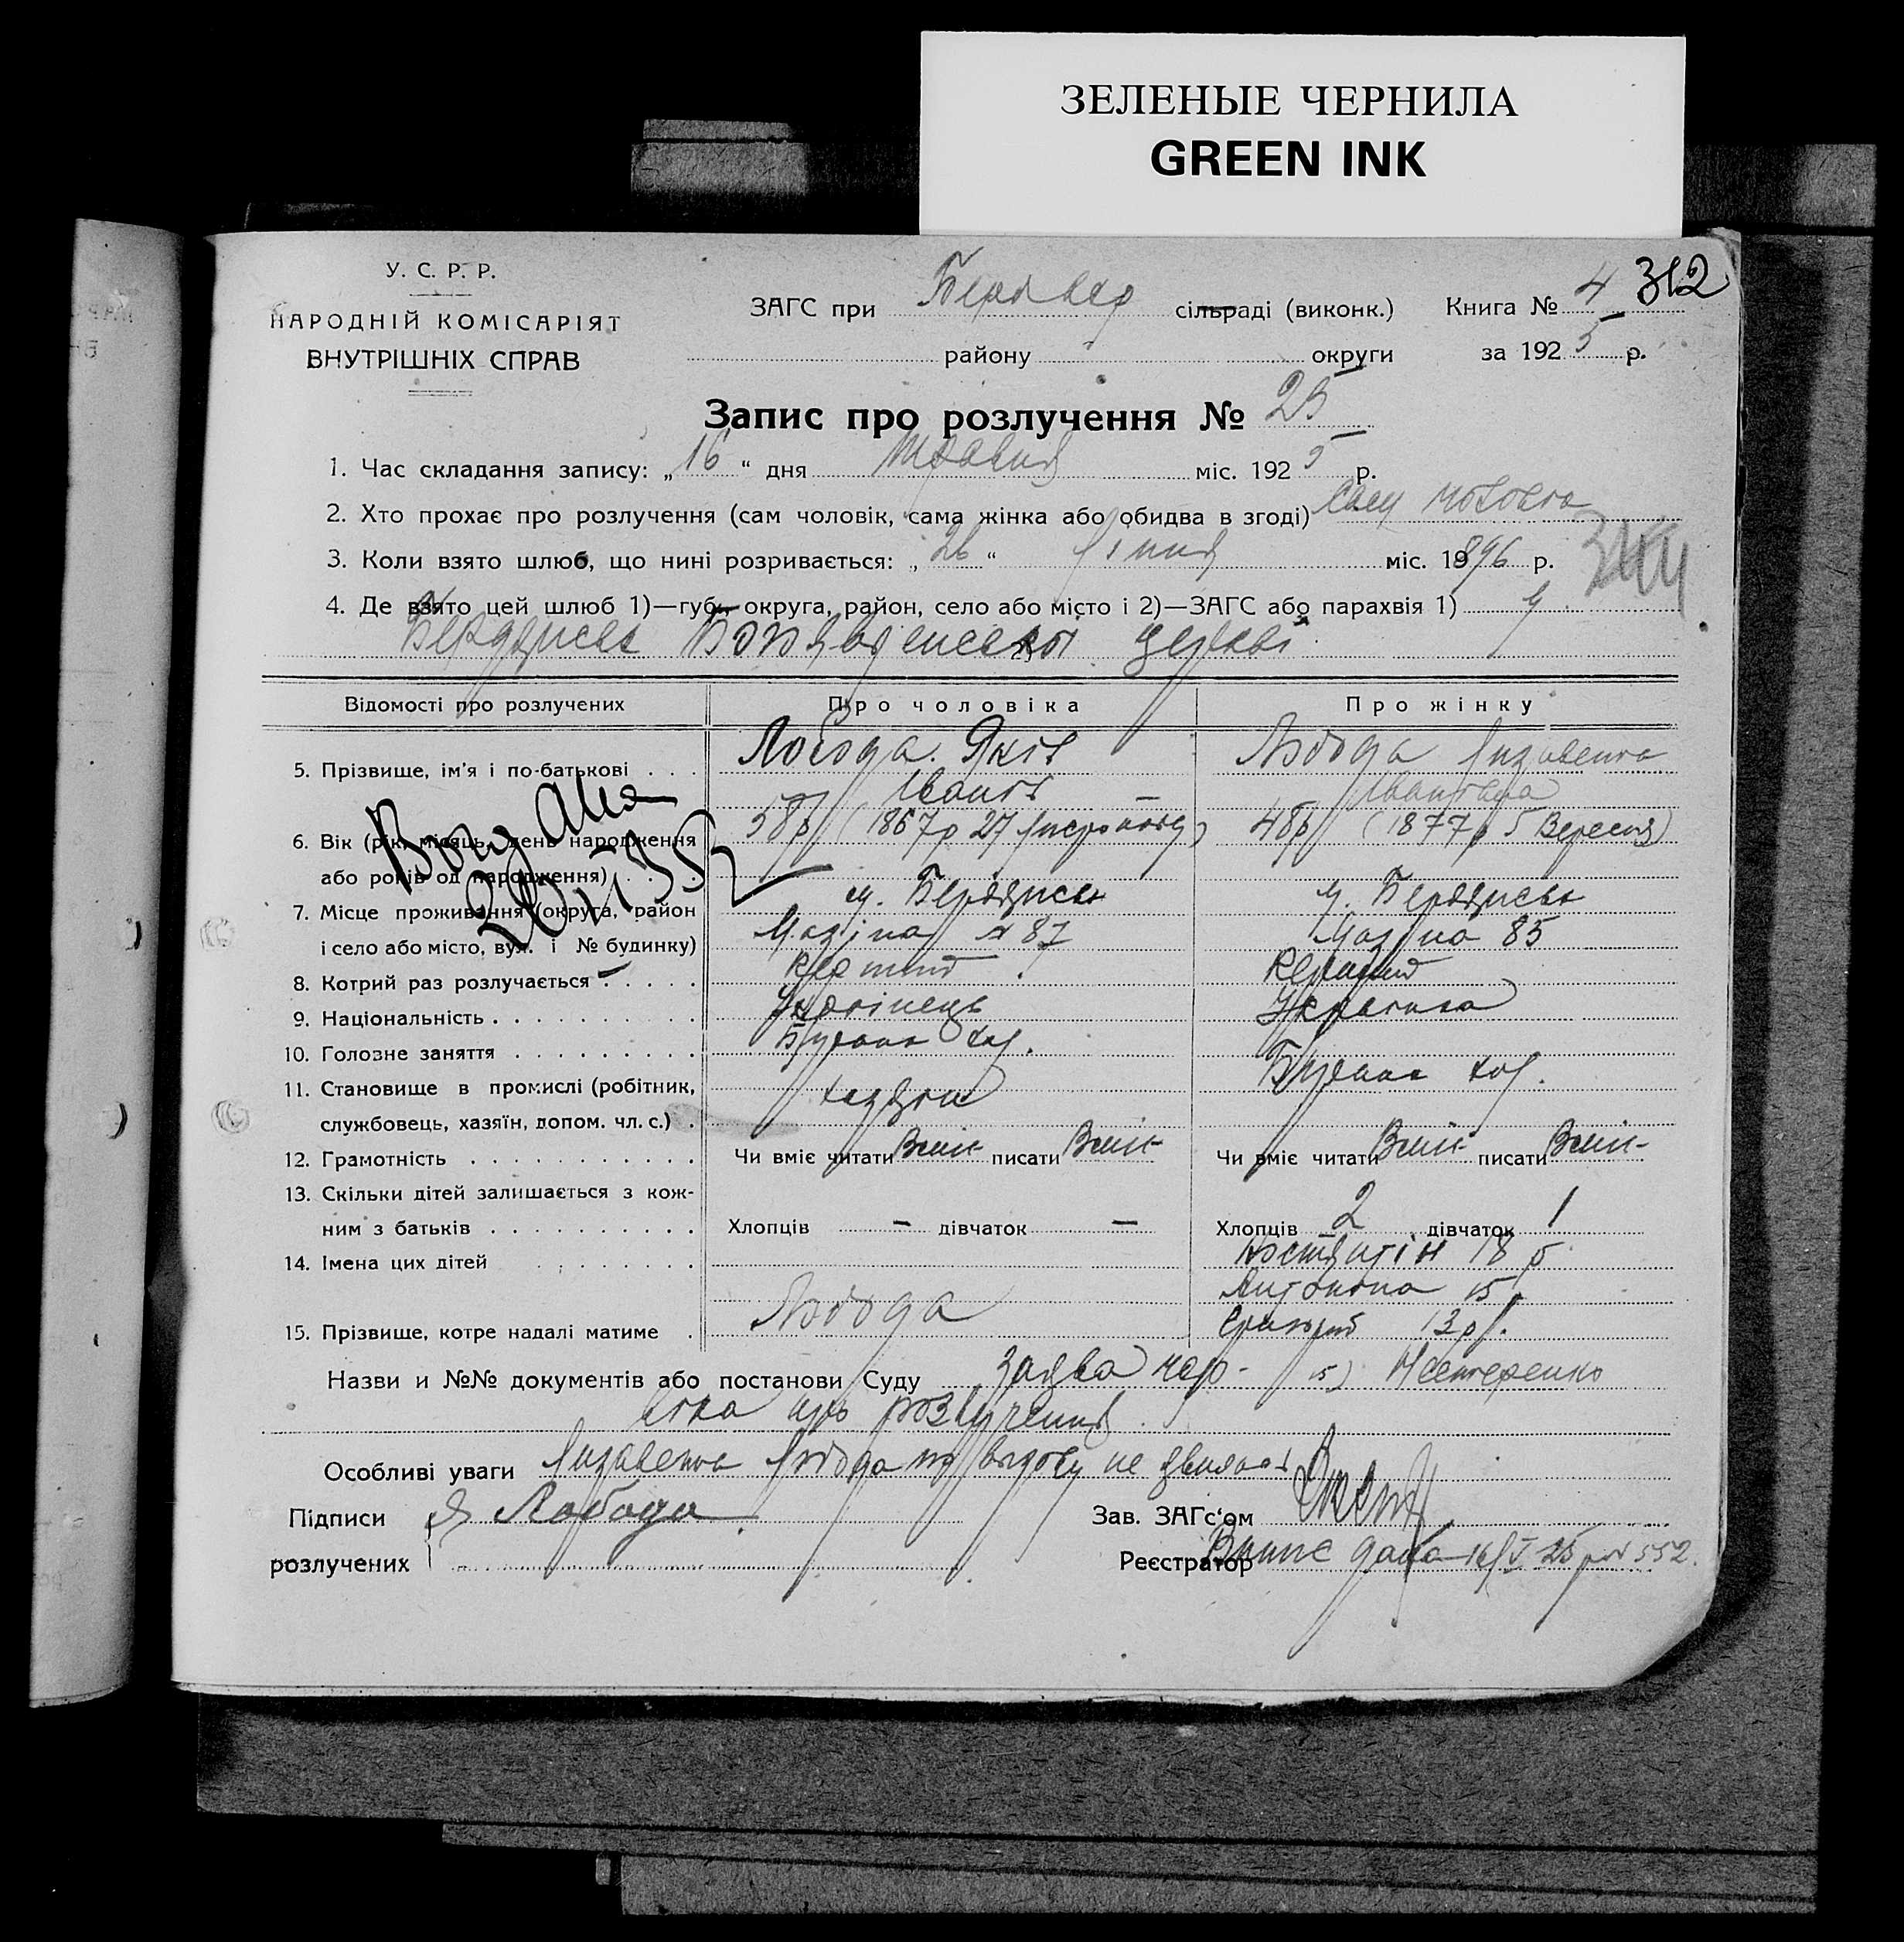 ЗЕЛЕНЫЕ ЧЕРНИЛА
GREEN INK
У. С. Р. Р.
НАРОДНІЙ КОМІСАРІЯТ
ВНУТРІШНІХ СПРАВ
312
ЗАГС при сільраді (виконк.) Книга № 4
району округи за 1925 р.
Запис про розлучення № 25
1. Час складання запису: „16“ дня травня міс. 1925 р.
2. Хто прохає про розлучення (сам чоловік, сама жінка або обидва в згоді) сам чоловік
3. Коли взято шлюб, що нині розривається: „26“ міс. 1896 р.
344
4. Де взято цей шлюб 1)—губ., округа, район, село або місто і 2)—ЗАГС або парахвія 1) у
церкві
Відомості про розлучених Про чоловіка Про жінку
5. Прізвище, ім'я і по-батькові . . . Лобода Яків Лобода Лизавета
Іванів — Іванівна
6. Вік (рік, місяць, день народження 58р. (1867р 27 Листопада) 48р. (1877р 5 Вересня)
або років од народження) . . .
7. Місце проживання (округа, район м. Бердичев м. Бердичев
і село або місто, вул. і № будинку) № 87 85
8. Котрий раз розлучається . . . . . Перший Перший
9. Національність . . . . . . . . . . Українець Українка
10. Головне заняття . . . . . . . . .
11. Становище в промислі (робітник,
службовець, хазяїн, допом. чл. с.) . хазяїн
12. Грамотність . . . . . . . . . . . Чи вміє читати Вміє писати Вміє Чи вміє читати Вміє писати Вміє
13. Скільки дітей залишається з кож-
ним з батьків . . . . . . . . . . Хлопців — дівчаток — Хлопців 2 дівчаток 1
14. Імена цих дітей . . . . . . . Костянтін 18 р
Антоніна 15
15. Прізвище, котре надалі матиме . Лобода 13 р.
Назви и №№ документів або постанови Суду Заява чоло- 15) Нестеренко
віка про розлучення
Особливі уваги Лизавета Лобода по визову не явилась
Підписи Я Лобода Зав. ЗАГс'ом
розлучених Реєстратор дана 16/V 25 р № 552.